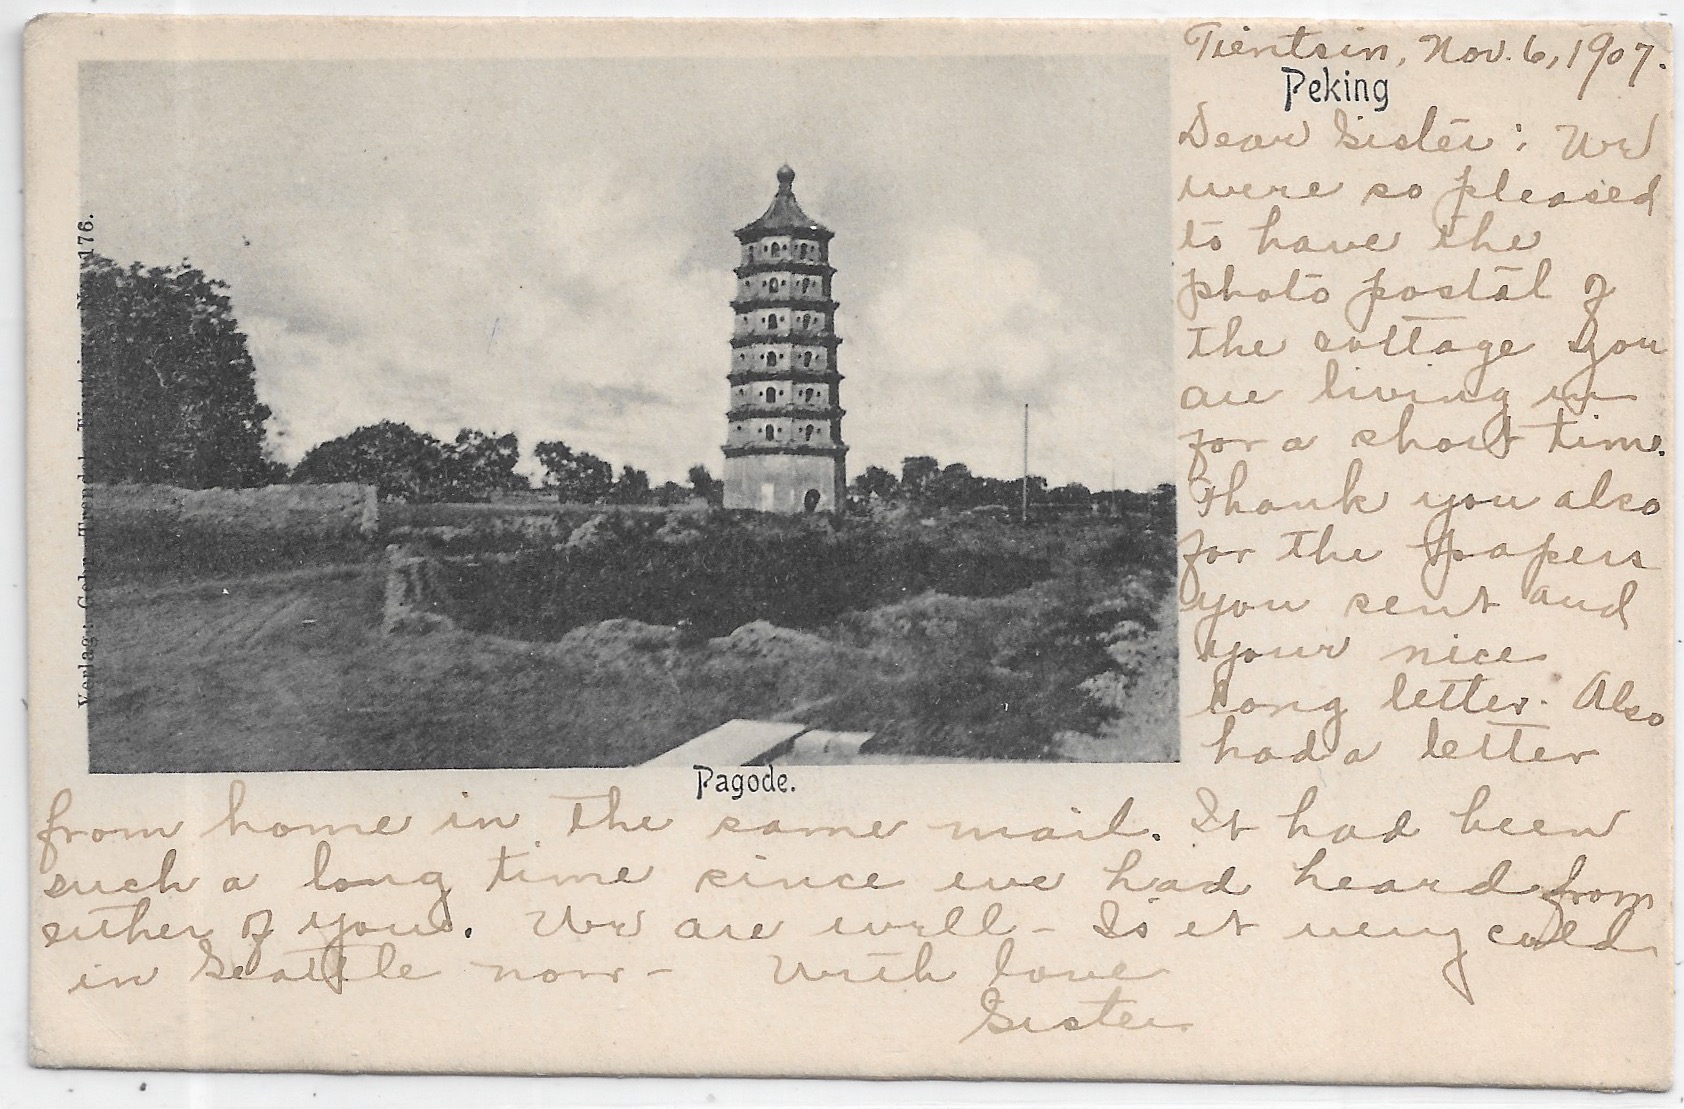 Tientsin, Nov. 6, 1907.
Peking
Dear Sister: We
were so pleased
to have the
photo postal of
the cottage you
are living in
for a short time.
Thank you also
for the papers
you sent and
your nice
long letter. Also
had a letter
from home in the same mail. It had been
such a long time since we had heard from
either of you. We are well – Is it very cold
in Seattle now – With love
Sister
Pagode.
Verlag: Gebr. 176.